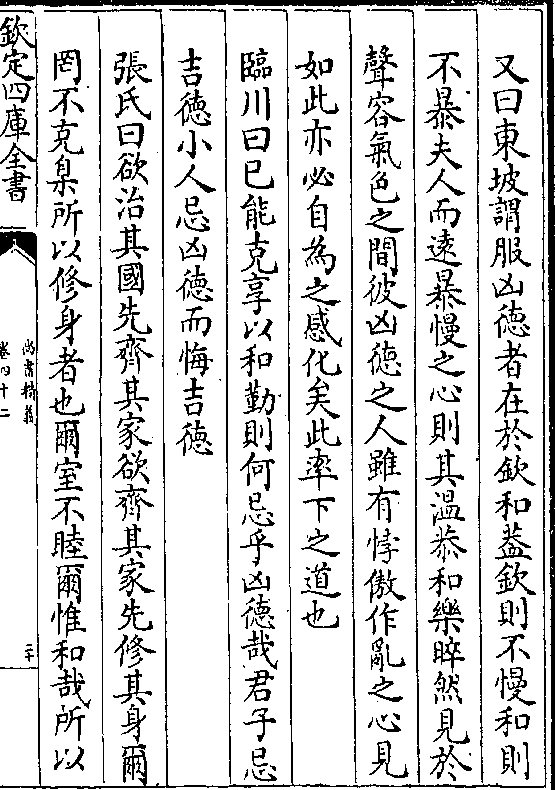 又曰東坡謂服凶徳者在於欽和蓋欽則不慢和則
不暴夫人而逺暴慢之心則其温恭和樂睟然見於
聲容氣色之間彼凶徳之人雖有悖傲作亂之心見
如此亦必自為之感化矣此率下之道也
臨川曰已能克享以和勤則何忌乎凶徳哉君子忌
吉徳小人忌凶徳而悔吉徳
張氏曰欲治其國先齊其家欲齊其家先修其身爾
罔不克臬所以修身者也爾室不睦爾惟和哉所以
欽定四庫全書
尚書精義
卷四十二
二十